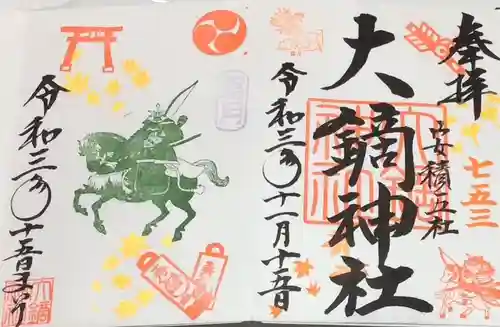 奉拝
安積五社
七五三
大鏑神社
令和三年十一月十五日
令和三年
十五日まいり